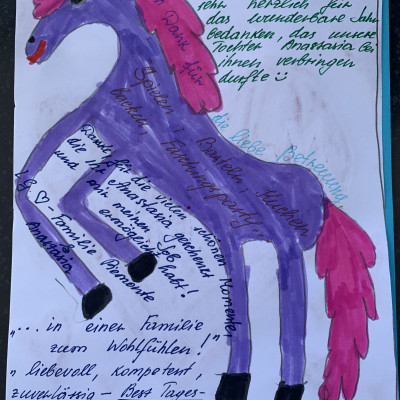 sehr herzlich für
das wunderbare Jahr
bedanken, das unsere
Tochter Anastasia bei
ihnen verbringen
durfte
Dank für
die liebe Betreuung
Spielen, Basteln, Kuchen
backen, Faschingsparty...
Danke für die vielen schönen Momente,
die ihr Anastasia geschenkt
und mir meinen Job
ermöglicht habt!
L.G. Familie Piemonte
Anastasia
"... in einer Familie
zum Wohlfühlen!"
"liebevoll, kompetent,
zuverlässig - Best Tages-